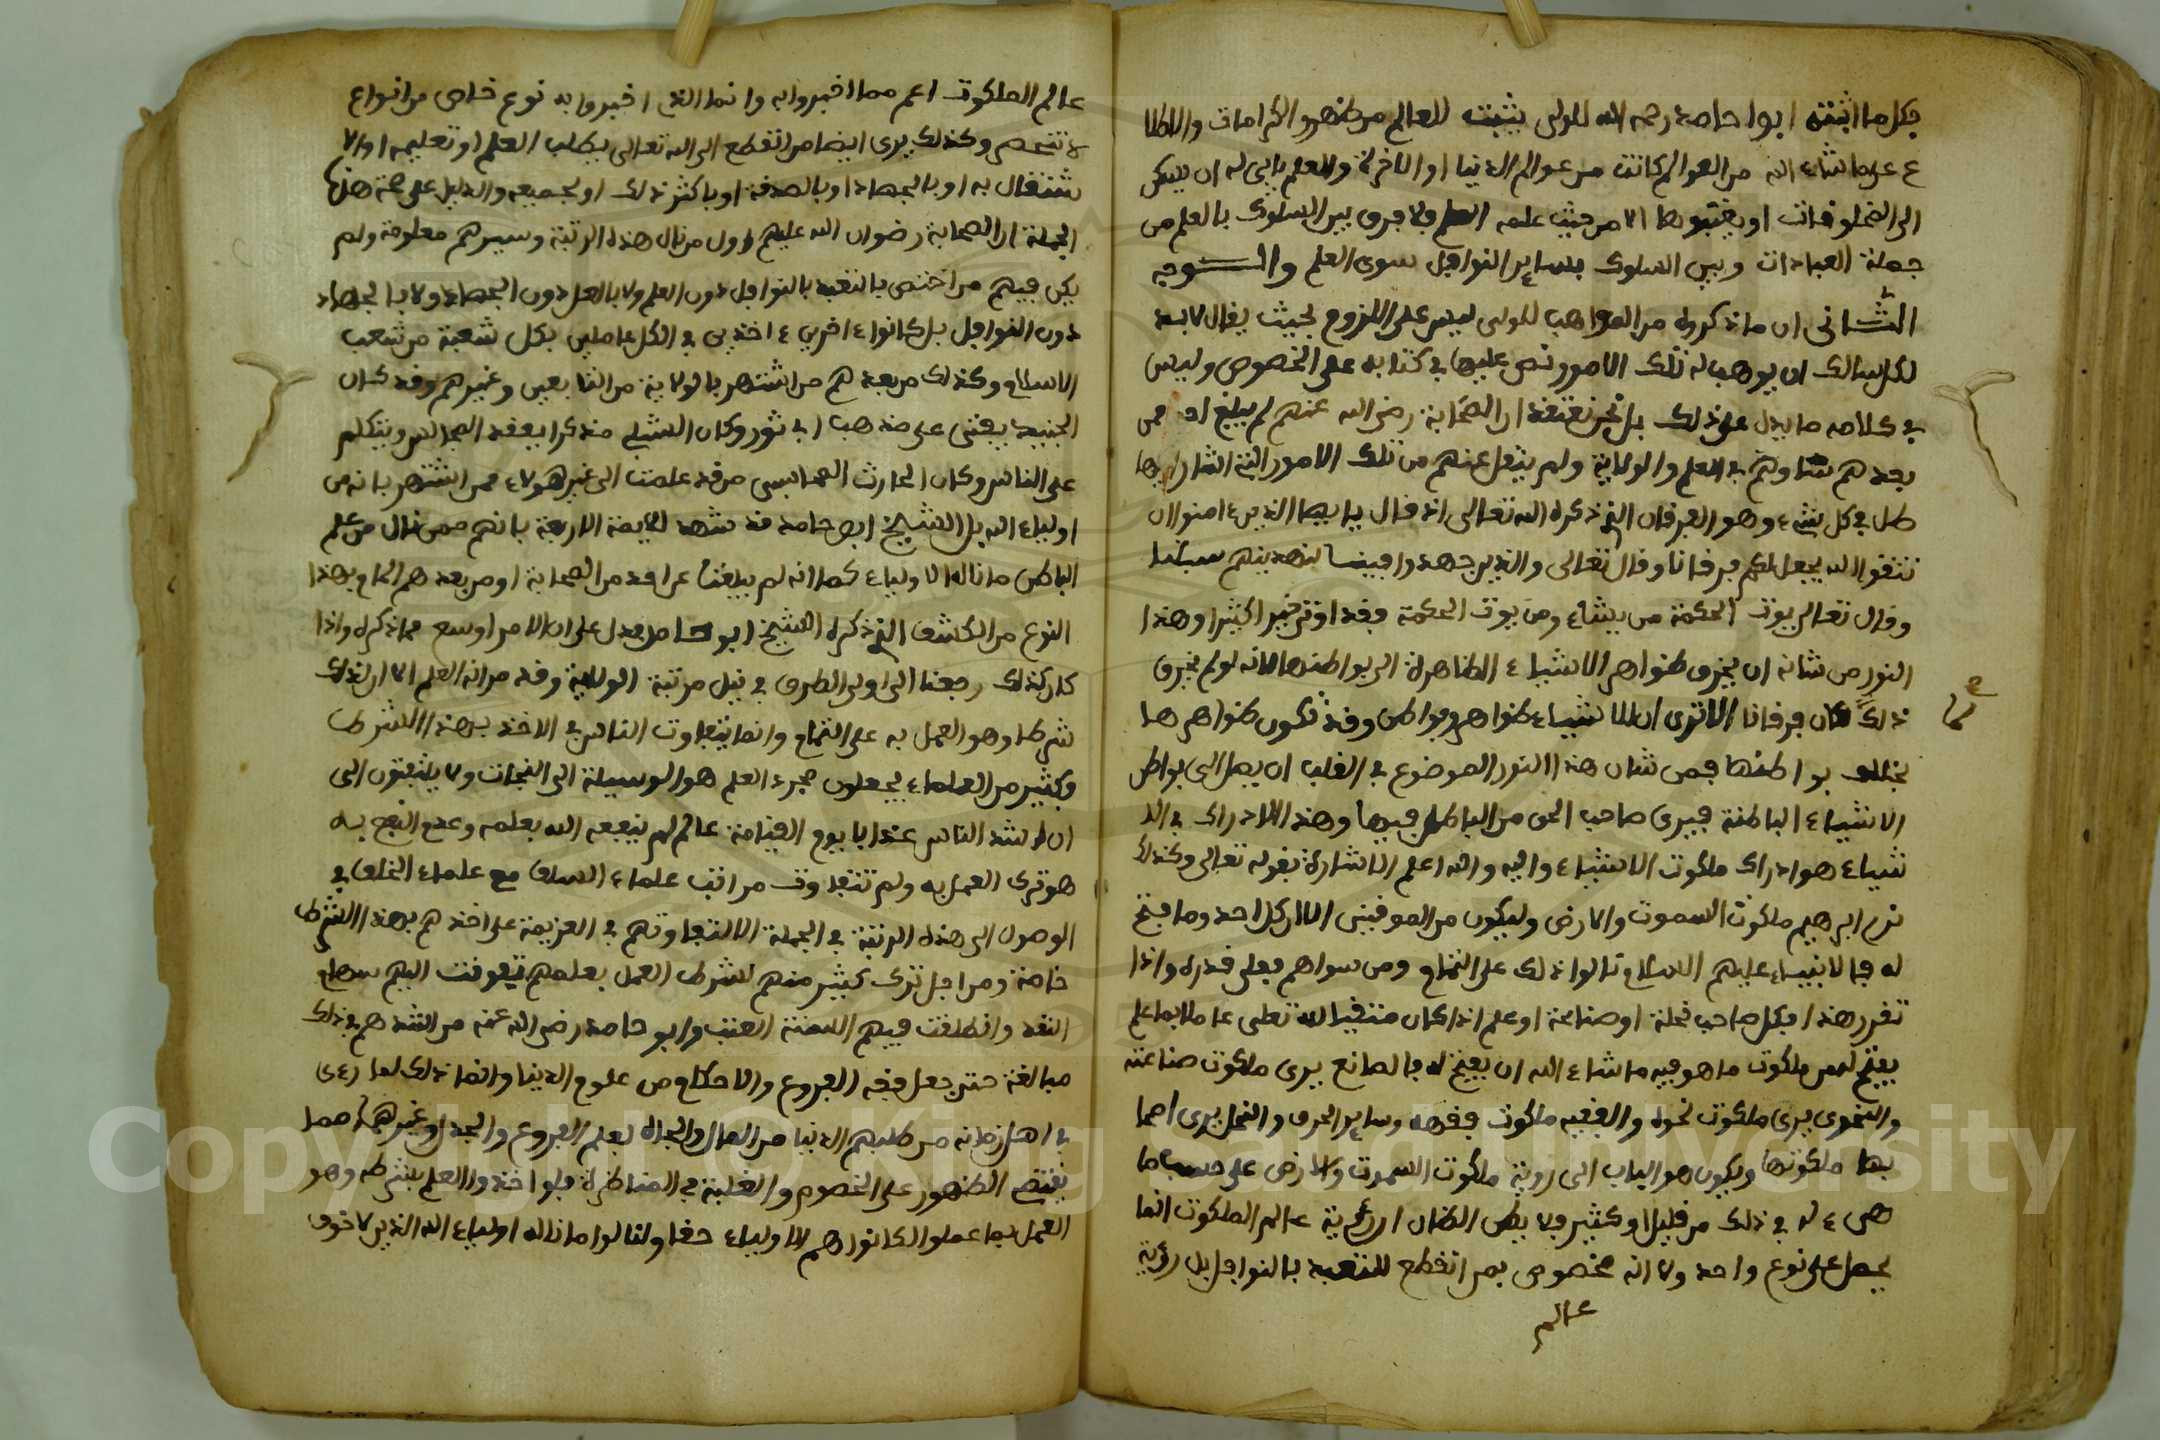 فكل ما اثبته ابوا حامد رحمه الله للولى يثبت للعالم من ظهور الكرامات والاطلا
ع على ما شاء الله من العوالم كانت من عوالم الدنيا او الاخرة والعلم يابى له ان يسكن
الى المخلوقات او يعتبرها الا من حيث علمه العلم ولا فرق بين السلوك بالعلم من
جملة العبادات وبين السلوك بساير النوافل سوى العلم والــوجه
الثــانى ان ما ذكروه من المواهب للولى ليس على اللزوم بحيث يقال لابد
لكل سالك ان يوهب له تلك الامور ونص عليها في كتابه على الخصوص وليس
في كلامه ما يدل على ذلك بل نحن نعتقد ان الصحابة رضى الله عنهم لم يبلغ احد ممن
بعدهم شاوهم في العلم والولاية ولم ينقل عنهم من تلك الامور التى اشار اليها
طل في كل شىء وهو الفرقان الذي ذكره الله تعالى اذ قال يا ايها الذين ءامنوا ان
تتقوا الله يجعل لكم فرقانا وقال تعالى والذين جهدوا فينا لنهدينهم سبلنا
وقال تعالى يوت الحكمة من يشاء ومن يوت الحكمة فقد اوتى خيرا كثيرا وهذا
النور من شانه ان يخرق ظواهر الاشياء الظاهرة الى بواطنها لانه لو لم يخرق
ذلك كان فرقانا الا ترى ان للاشياء ظواهر وبواطن وقد تكون ظواهرها
لما صح
بخلاف بواطنها فمن شان هذا النور الموضوع في القلب ان يصل الى بواطن
الاشياء الباطنة فيرى صاحب الحق من الباطل فيها وهذا الادراك في الا
شياء هو ادراك ملكوت الاشياء واليه والله اعلم الاشارة بقوله تعالى وكذلك
نرى ابرهيم ملكوت السموت والارض وليكون من الموقنين الا ان كل احد وما فتح
له فالانبياء عليهم السلام نالوا ذلك على التمام ومن سواهم فعلى قدره واذا
تقرر هذا فكل صاحب نحلة او صناعة او علم اذا كان متقيا لله تعلى عاملا بما علم
يفتح له من ملكوت ما هو فيه ما شاء الله ان يفتح له فالصانع يرى ملكوت صناعته
والنحوى يرى ملكوت نحوه والفقيه ملكوت فقهه وساير الحرف والنحل يرى اصحا
بها ملكوتها ويكون هو الباب الى روية ملكوت السموت والارض على حسب ما
هيىء له في ذلك من قليل او كثير ولا يظن الظان ان رؤية عالم الملكوت انما
يحصل على نوع واحد ولا انه مخصوص بمن انقطع للتعبد بالنوافل بل رؤية
عالم
عالم الملكوت اعم مما اخبروا به وانما الذي اخبروا به نوع خاص من انواع
لا تنحصر وكذلك يرى ايضا من انقطع الى الله تعالى بطلب العلم او تعليمه او الا
شتغال به او بالجهاد او بالصدقة او باكثر ذلك او بجميعه والدليل على صحة هذه
الجملة ان الصحابة رضوان الله عليهم اول من نال هذه الرتبة وسيرهم معلومة ولم
يكن فيهم من اختص بالتعبد بالنوافل دون العلم ولا بالعلم دون الجهاد ولا بالجهاد
دون النوافل بل كانوا ءاخرين ءاخذين في الكل عاملين بكل شعبة من شعب
الاسلام وكذلك من بعدهم من اشتهر بالولاية من التابعين وغيرهم وقد كان
الجنيد يفتى على مذهب ابى ثور وكان الشبلي مذكرا يعقد المجالس ويتكلم
على الناس وكان الحارث المحاسبى من قد علمت الى غير هولاء ممن اشتهر بانه من
اولياء الله بل الشيخ ابو حامد قد شهد للايمة الاربعة بانهم ممن نال من علم
الباطن ما ناله الاولياء كما انه لم يبلغنا عن احد من الصحابة او من بعدهم الكلام بهذا
النوع من الكشف الذي ذكره الشيخ ابو حامد فدل على ان الامر اوسع مما ذكره واذا
كان كذلك رجعنا الى اولى الطرق في نيل مرتبة الولاية وقد مر انه العلم الا ان لذلك
شرطا وهو العمل به على التمام وانما يتفاوت الناس في الاخذ بهذا الشرط
وكثير من العلماء يجعلون مجرد العلم هو الوسيلة الى النجات ولا يلتفتون الى
ان اشد الناس عذابا يوم القيامة عالم لم ينفعه الله بعلمه وعدم النفع به
هو ترك العمل به ولم تتفاوت مراتب علماء السلف مع علماء الخلف في
الوصول الى هذه الرتبة في الجملة الا لتفاوتهم في العزيمة على اخذهم بهذا الشرط
خاصة ومن اجل ترك كثير منهم لشرط العمل بعلمهم تفوقت اليهم سهام
النقد وانطلقت فيهم السنة العتب وابو حامد رضى الله عنه من اشدهم في ذلك
مبالغة حتى جعل فقه الفروع والاحكام من علوم الدنيا وانما ذلك لما رءى
في اهل زمانه من طلبهم الدنيا من المال والجاه بعلم الفروع والجدل وغيرهما مما
يقتضى الظهور على الخصوم والغلبة في المناظرة ولو اخذوا العلم بشرطه وهو
العمل بما عملوا لكانوا هم الاولياء حقا ولنالوا ما ناله اولياء الله الذين لا خوف
Copyright © King Saud University